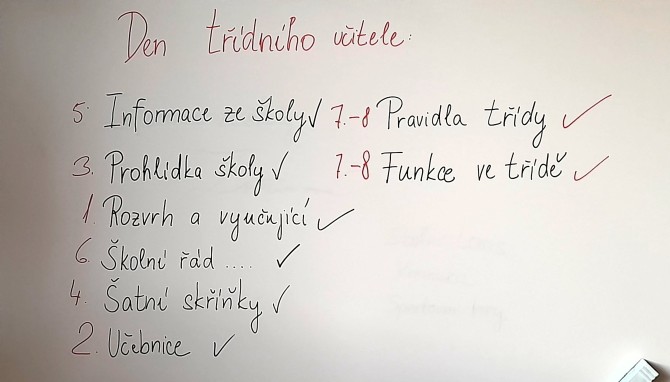 Den třídního učitele:
5. Informace ze školy ✓ 7.-8 Pravidla třídy ✓
3. Prohlídka školy ✓ 7.-8 Funkce ve třídě ✓
1. Rozvrh a vyučující ✓
6. Školní řád .... ✓
4. Šatní skříňky ✓
2. Učebnice ✓